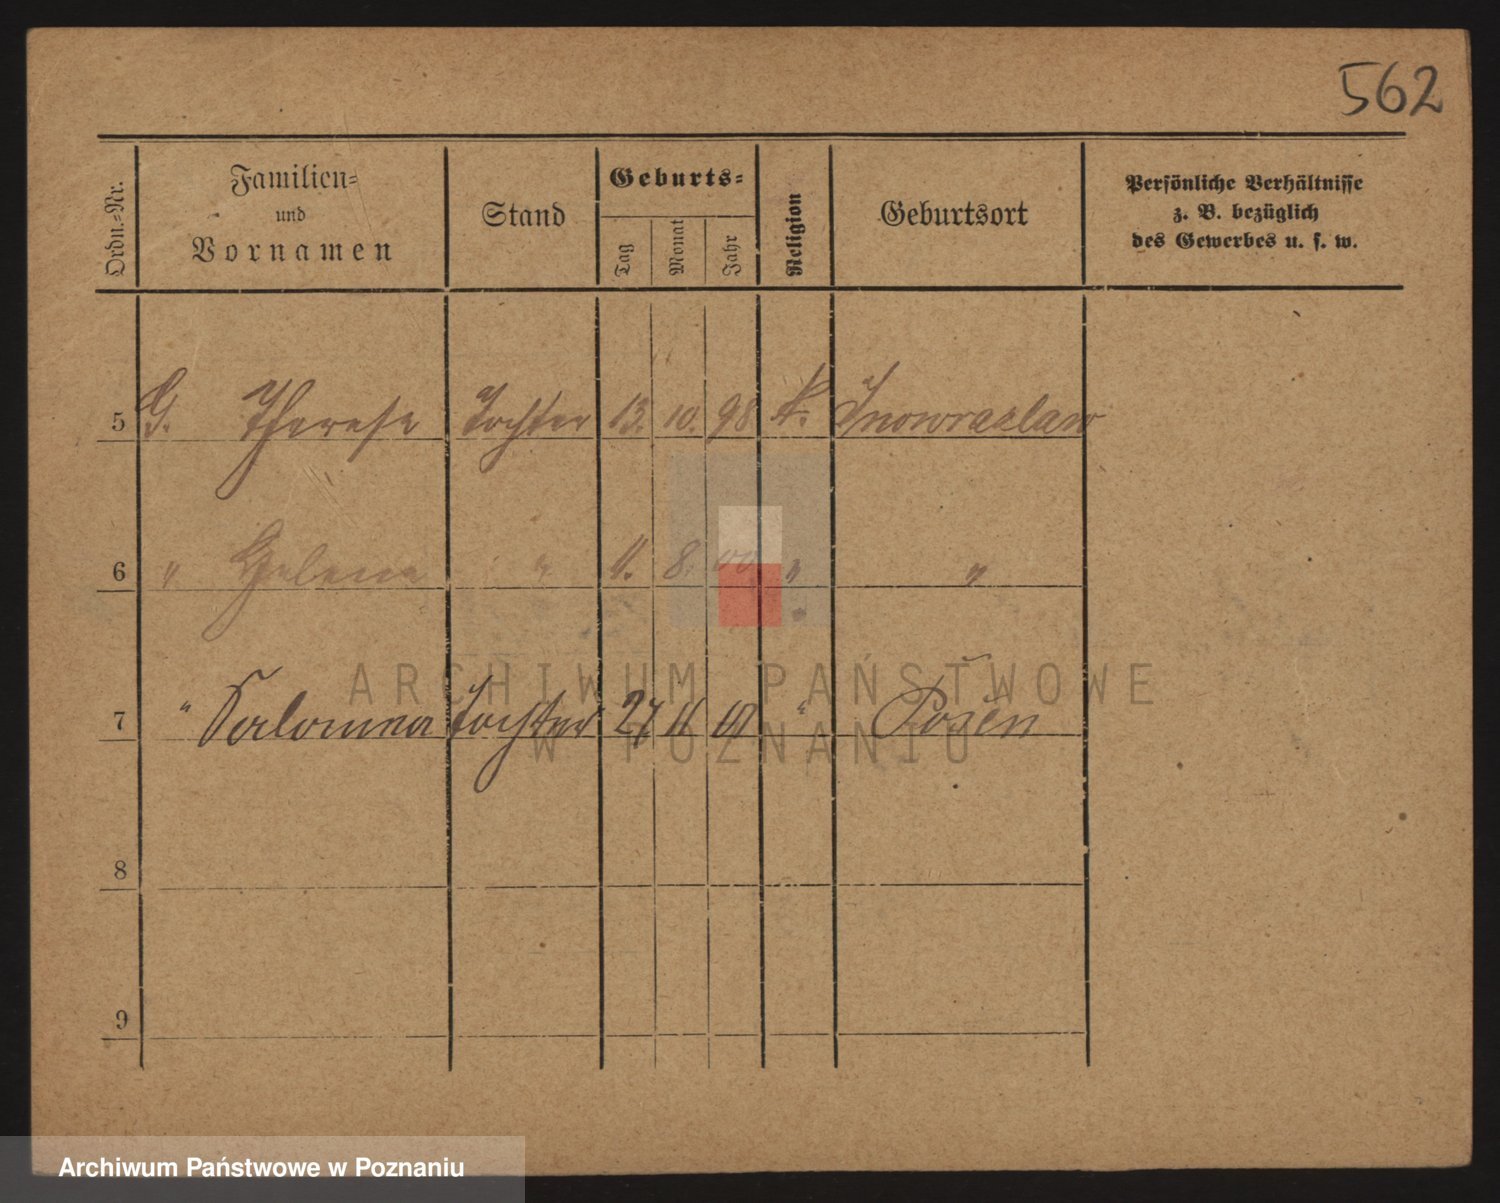 562
Ordn.-Nr.
Familien-
und
Vornamen
Stand
Geburts-
Tag
Monat
Jahr
Religion
Geburtsort
Persönliche Verhältnisse
z. B. bezüglich
des Gewerbes u. s. w.
5 G. Therese Tochter 13. 10. 98 k. Inowrazlaw
6 " Helene " 11. 8. 00 " "
ARCHIWUM PAŃSTWOWE
7 " Salomea Tochter 27 11 " Posen
W POZNANIU
8
9
Archiwum Państwowe w Poznaniu